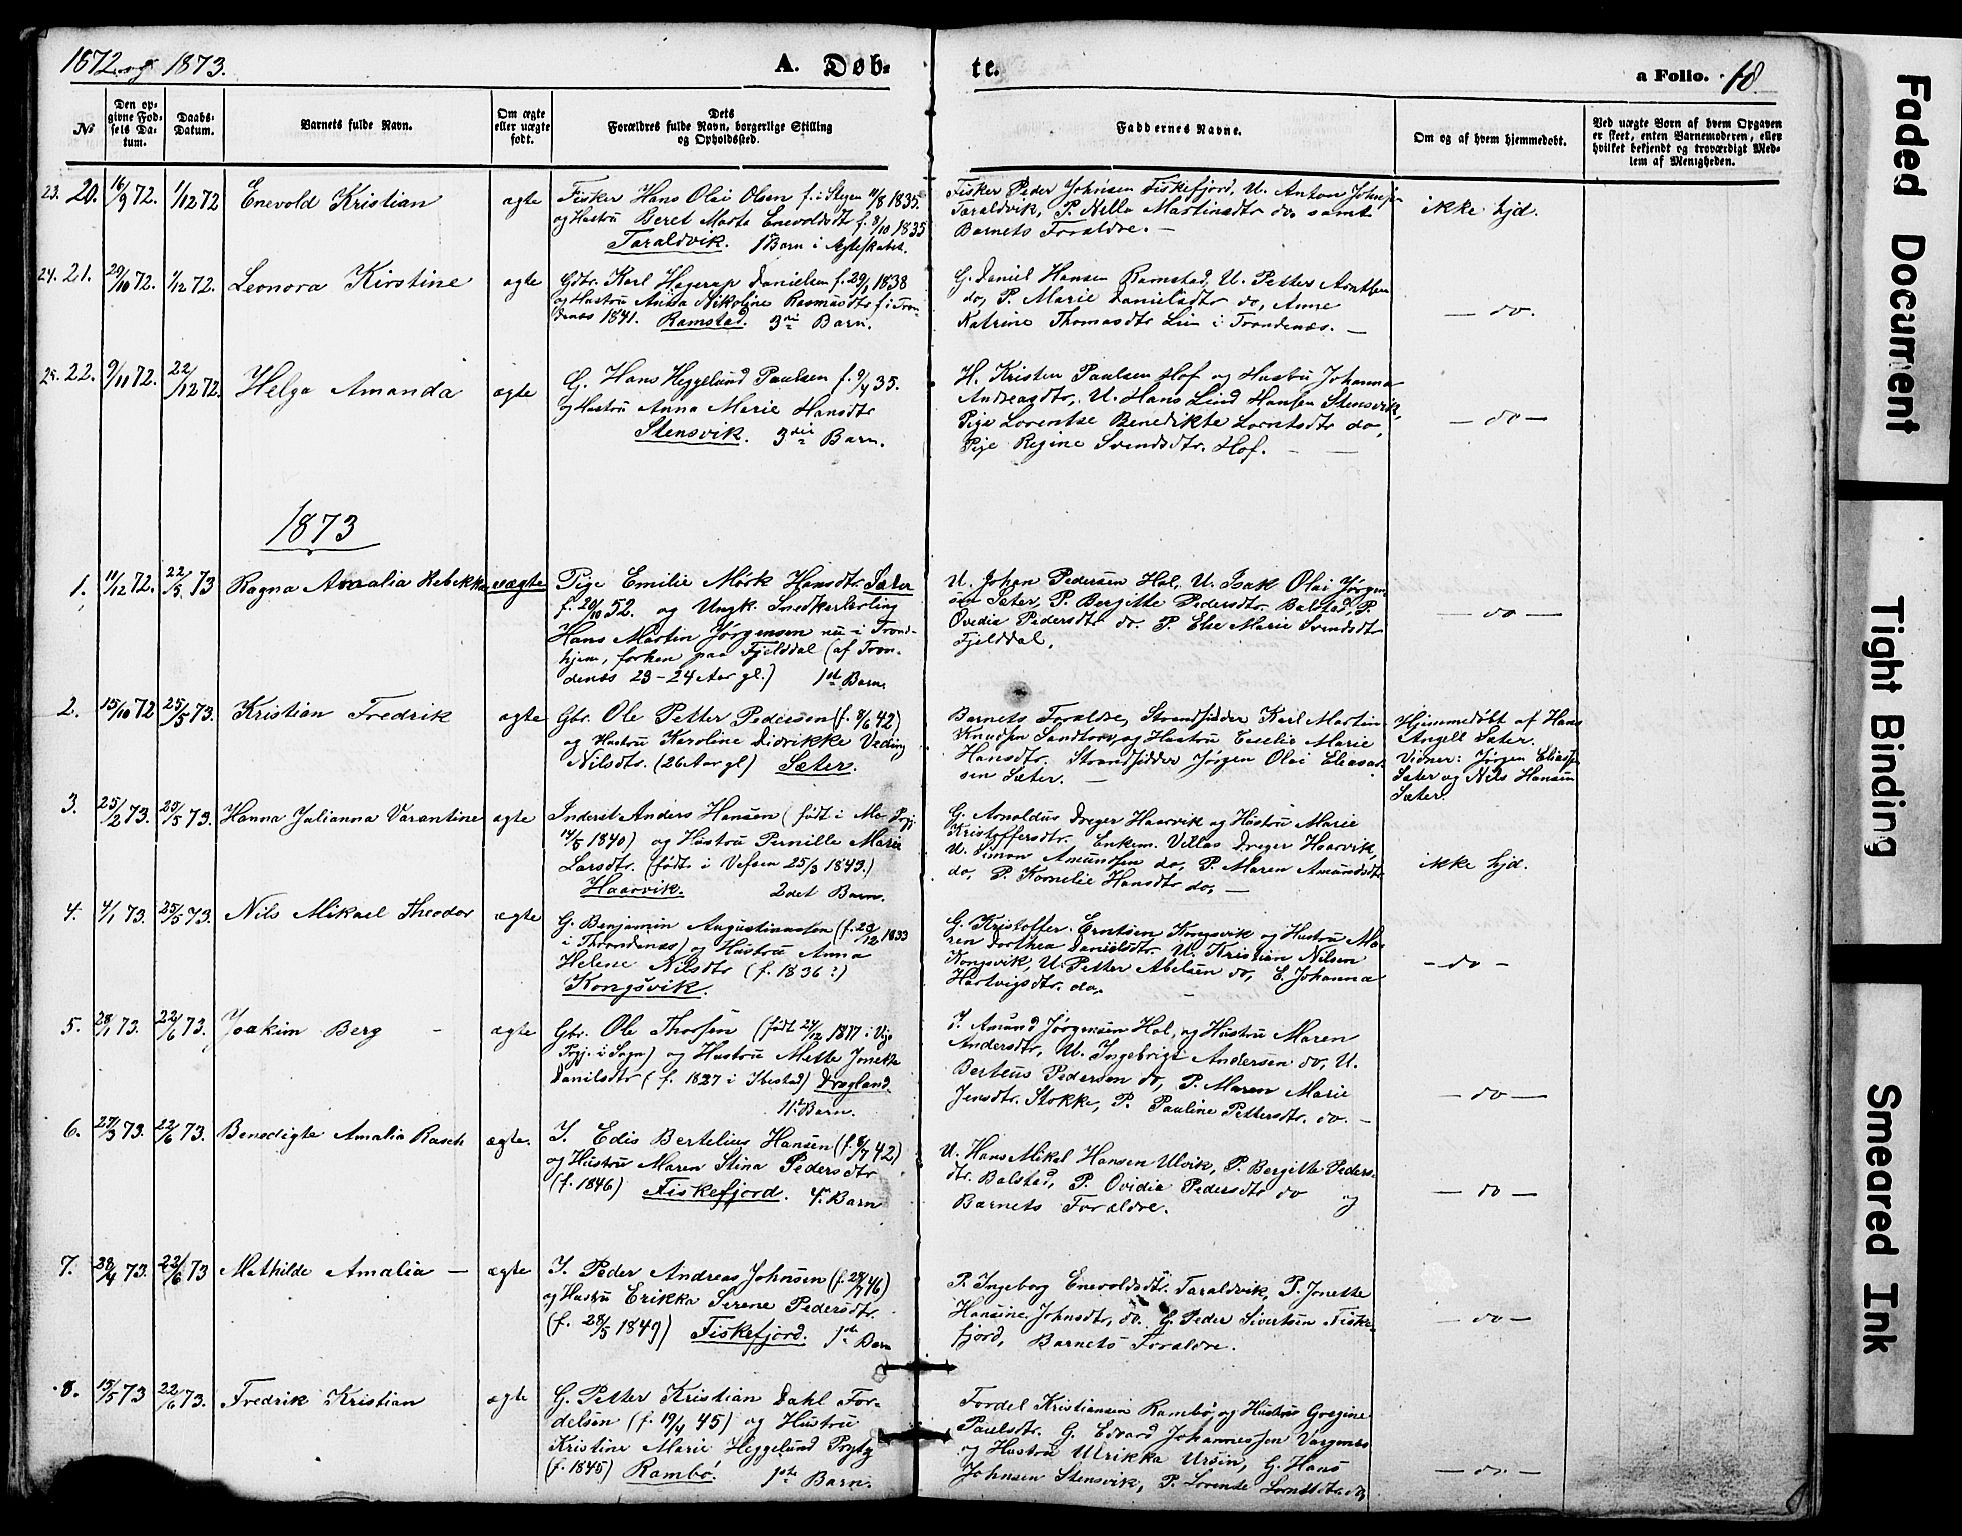 1872 og 1873.
A. Døb-
te.
a Folio. 18.
No
Den op-
givne Fød-
sels Da-
tum.
Daabs-
Datum.
Barnets fulde Navn.
Om ægte
eller uægte
født.
Dets
Forældres fulde Navn, borgerlige Stilling
og Opholdssted.
Faddernes Navne.
Om og af hvem hjemmedøbt.
Ved uægte Børn af hvem Opgaven
er skeet, enten Barnemoderen, eller
hvilket bekjendt og troværdigt Med-
lem af Menigheden.
23. 20. 16/9 72. 1/12 72 Enevold Kristian ægte
Fisker Hans Olai Olsen f. i Stegen 11/8 1835.
og Hustru Beret Marta Enevoldsdt f. 8/10 1835
Taraldvik. 1 Barn i Ægteskabet.
Fisker Peder Johnsen Fiskefjord, U. Anton Johnsen
Taraldvik, P. Nilla Martinsdtr do, samt
Barnets Forældre. —
ikke hjd.
24. 21. 29/10 72. 1/12 72. Leonora Kirstine ægte
Gbr. Karl Hagerup Danielsen f. 29/1 1838
og Hustru Anna Nikoline Rasmusdtr f. i Tron-
denæs 1841. Ramstad. 3die Barn.
G. Daniel Hansen Ramstad, U. Petter Arntsen
do, P. Marie Danielsdtr do, Anne
Katrine Thomasdtr Lien i Trondenæs. —
— do.
25. 22. 9/11 72. 22/12 72. Helga Amanda ægte
G. Hans Heggelund Paulsen f. 9/4 35.
og Hustru Anna Marie Hansdtr
Stensvik. 3die Barn.
H. Kristen Paulsen Hof og Hustru Johanna
Andreasdtr, U. Hans Lind Hansen Stensvik,
Pige Lorentse Benedikte Lorntsdtr do,
Pige Regine Svendsdtr. Hof. — —
— do —
1873
1. 11/12 72. 22/5 73 Ragna Amalia Rebekka uægte
Pige Emilie Mørk Hansdtr. Sæter
f. 20/10 52. og Ungk. Snedkerlærling
Hans Martin Jørgensen nu i Trond-
hjem, forhen paa Fjelddal (af Tron-
denæs 23-24 Aar gl.) 1st Barn.
U. Johan Pedersen Hol, U. Isak Olai Jørgen-
sen Sæter, P. Bergitte Pedersdtr. Balstad, P.
Ovedia Pedersdtr do. P. Else Marie Svendsdtr
Fjelddal.
— do —
2. 15/10 72 25/5 73. Kristian Fredrik ægte
Gbr. Ole Petter Pedersen (f. 8/6 42)
og Hustru Karoline Didrikke Veding
Nilsdtr. (26 Aar gl) Sæter.
Barnets Forældre, Strandsidder Karl Martin
Knudsen Sandtorv, og Hustru Emelie Marie
Hansdtr. Strandsidder Jørgen Olai Eleasar-
sen Sæter. —
Hjemmedøbt af Hans
Angell Sæter.
Vidner: Jørgen Eliassen
Sæter og Nils Hansen
Sæter.
3. 25/2 73. 25/5 73. Hanna Julianna Varantine ægte
Inderst Anders Hansen (født i Mo Prgj.
14/5 1840) og Hustru Pernille Marie
Larsdtr. (født i Vefsen 25/3 1843.)
Haarvik. 2det Barn.
G. Arnoldus Dreyer Haarvik og Hustru Marie
Kristoffersdtr. Enkem. Villas Dreyer Haarvik,
U. Simon Amundsen do, P. Maren Amundsdtr
do, P. Kornelie Hansdtr do, —
ikke hjd.
4. 4/1 73. 25/5 73. Nils Mikael Theodor ægte
G. Benjamin Augustinusen (f. 23/12 1833
i Throndenæs) og Hustru Anna
Helene Nilsdtr (f. 1836?)
Kongsvik.
G. Kristoffer Erntsen Kongsvik og Hustru Ma-
ren Dorthea Danielsdtr. U. Kristian Nilsen
Kongsvik, U. Petter Abelsen do, E. Johanna
Hartvigsdtr. do. —
— do —
5. 28/1 73. 22/6 73. Joakim Berg — ægte
Gbr. Ole Thorsen (født 24/12 1817 i Vigs
Prgj. i Sogn) og Hustru Mette Jonetta
Danilsdtr (f. 1827 i Ibestad) Dragland.
11te Barn.
I. Amund Jørgensen Hol, og Hustru Maren
Andersdtr, U. Ingebrigt Andersen do, U.
Berteus Pedersen do, P. Maren Marie
Jensdtr. Stokke, P. Pauline Pettersdtr. do. —
— do —
6. 27/3 73. 22/6 73. Benedigte Amalia Rasch ægte.
I. Edis Bertelius Hansen (f. 8/7 42)
og Hustru Maren Stina Pedersdtr
(f. 1846) Fiskefjord. 4. Barn
U. Hans Mikal Hansen Ulvik, P. Bergitte Peders-
dtr. Balstad, P. Ovidia Pedersdtr do og
Barnets Forældre.
— do —
7. 28/4 73. 22/6 73 Mathilde Amalia — ægte
I. Peder Andreas Johnsen (f. 28/7 46)
og Hustru Erikka Serene Pedersdtr.
(f. 28/5 1849) Fiskefjord. 1ste Barn
P. Ingeborg Enevoldsdtr Taraldvik, P. Jonette
Hansine Johnsdtr, do. G. Peder Sivertsen Fiske-
fjord, Barnets Forældre.
— do —
8. 15/5 73 22/6 73. Fredrik Kristian ægte
G. Petter Kristian Dahl For-
delsen (f. 19/4 45) og Hustru
Kristine Marie Heggelund Prytz
(f. 1845) Rambø. 1ste Barn.
Fordel Kristiansen Rambø, og Hustru Gregine
Paulsdtr. G. Edvard Johannessen Vargenes
og Hustru Ulrikka Ursin, G. Hans
Johnsen Stensvik, P. Lorentse Lorntsdtr. do,
— do —
Faded Document
Tight Binding
Smeared Ink